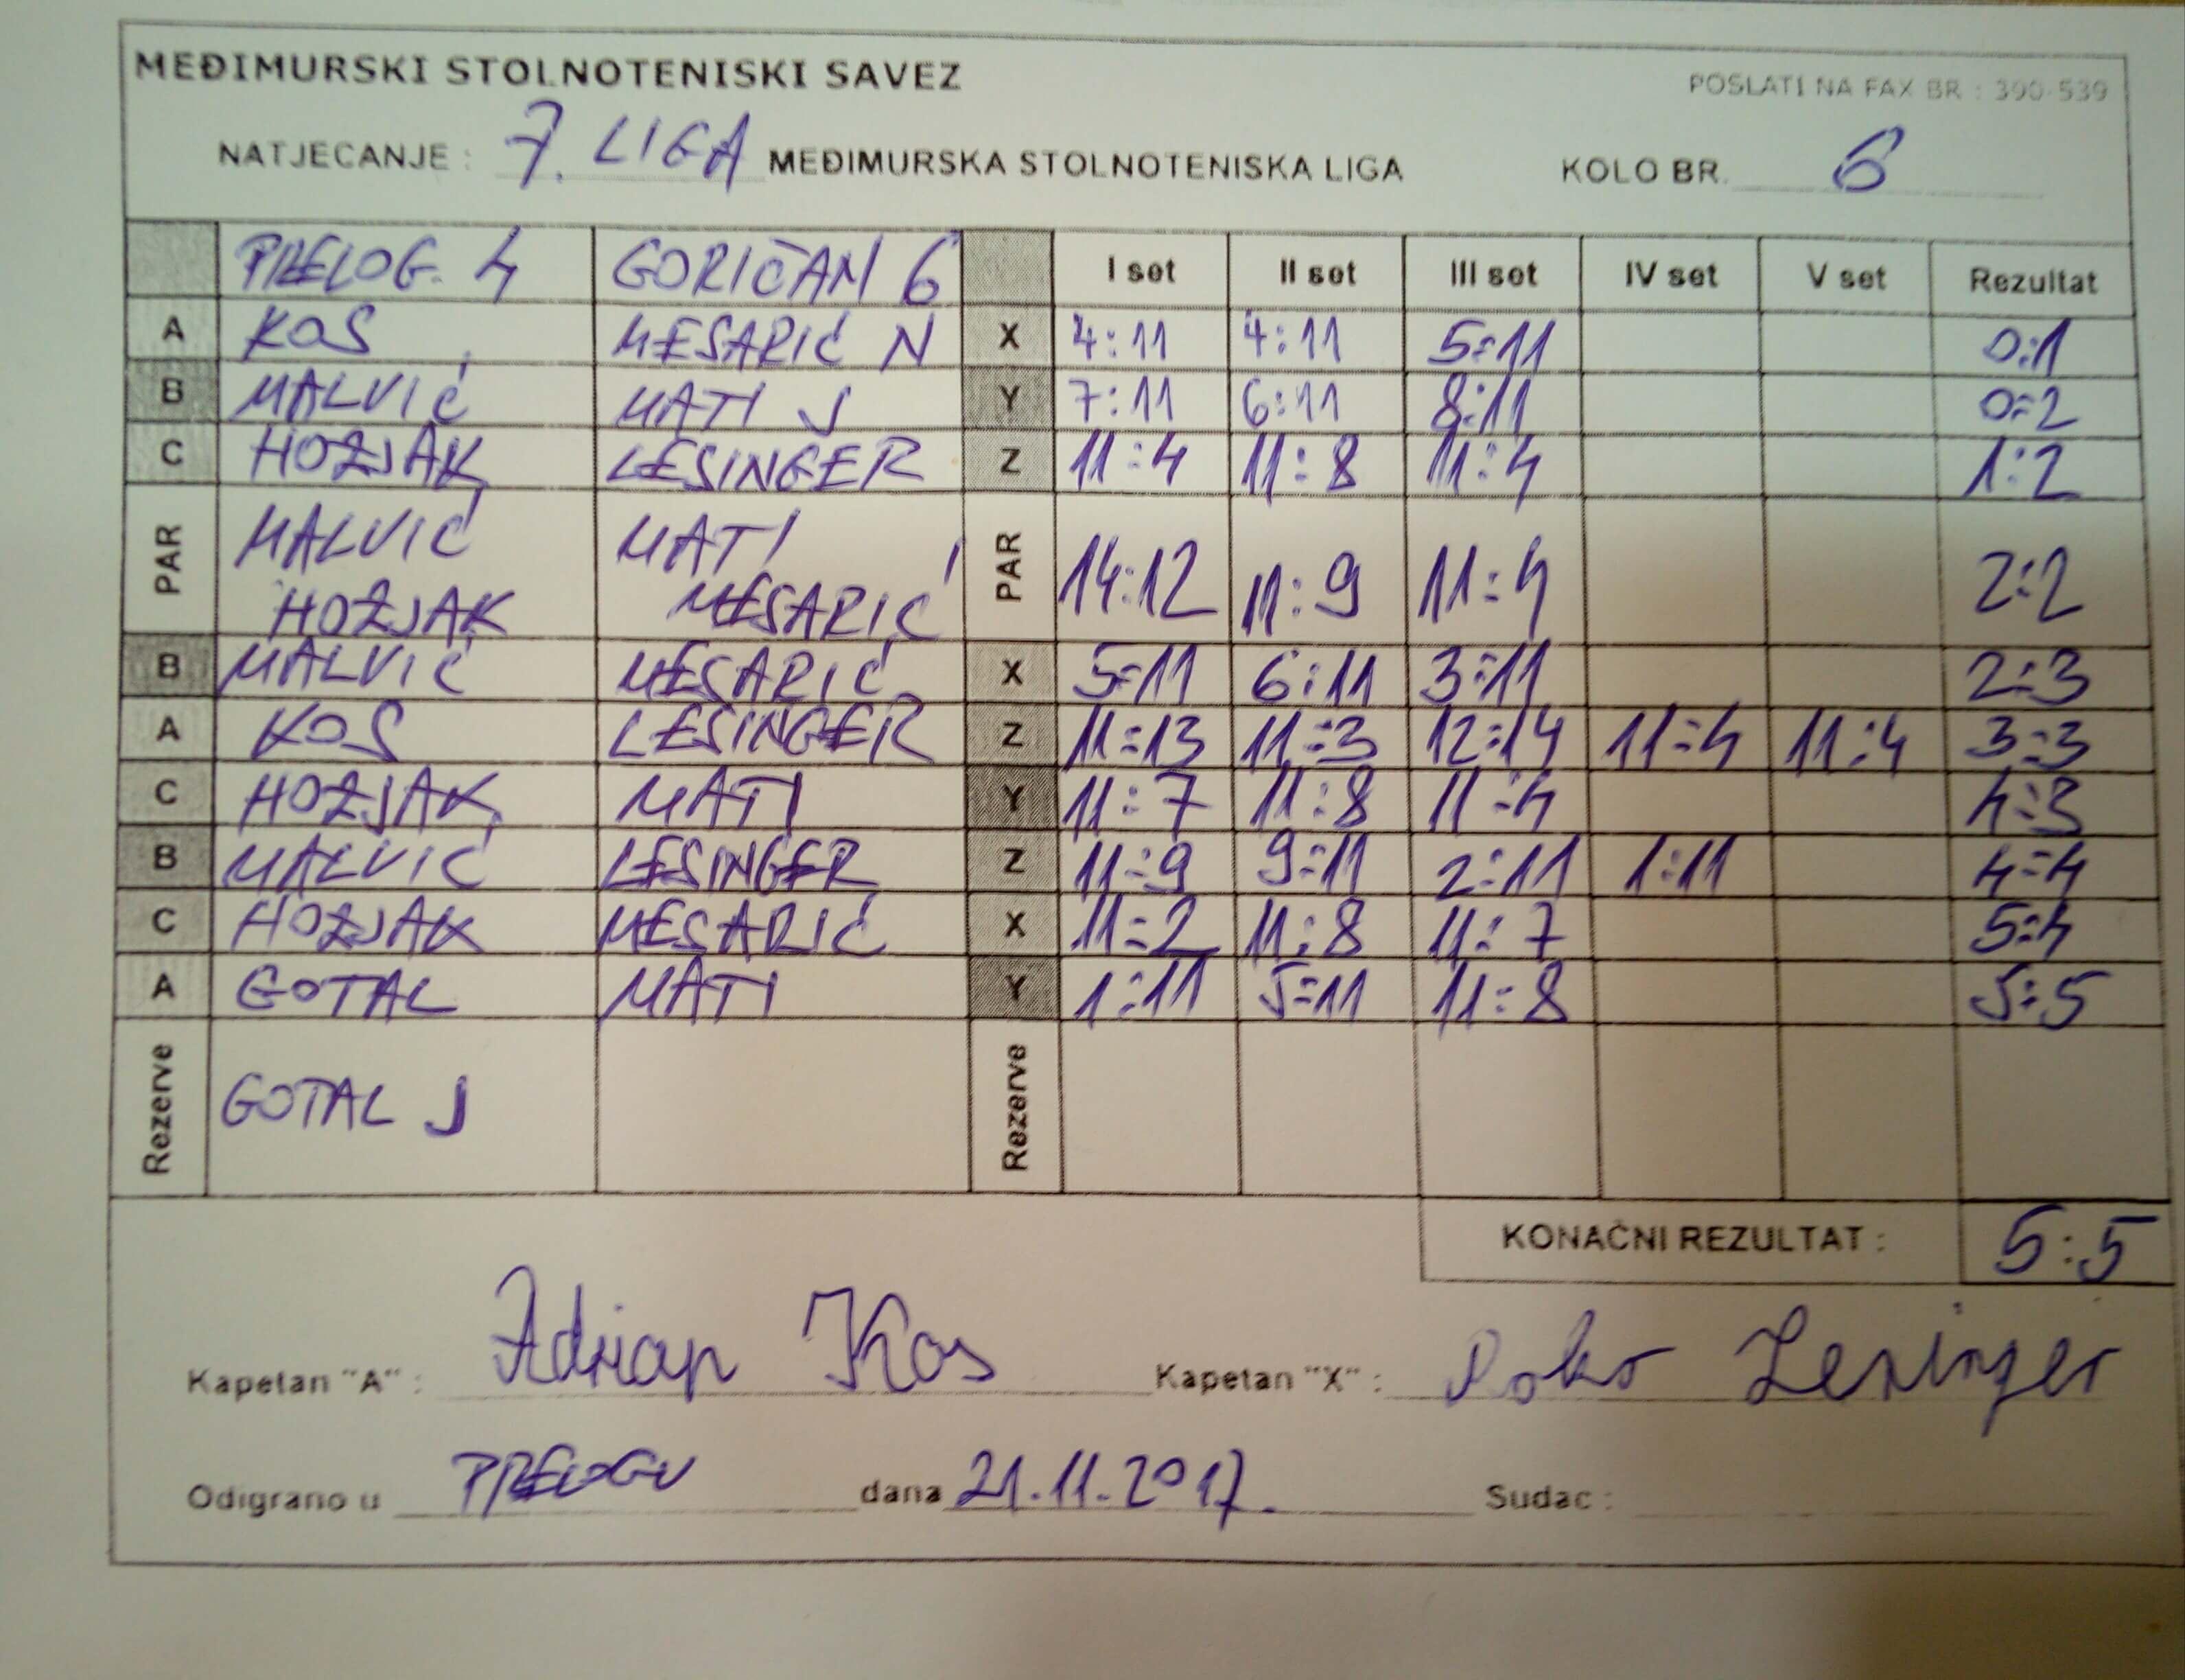 MEĐIMURSKI STOLNOTENISKI SAVEZ POSLATI NA FAX BR : 390-539
NATJECANJE : 7. LIGA MEĐIMURSKA STOLNOTENISKA LIGA KOLO BR. 6
PRELOG 4 GORIČAN 6 I set II set III set IV set V set Rezultat
A KOS MESARIĆ N X 4:11 4:11 5:11 0:1
B MALVIĆ MATI J Y 7:11 6:11 8:11 0:2
C HOŽJAK LESINGER Z 11:4 11:8 11:4 1:2
PAR MALVIĆ MATI PAR 14:12 11:9 11:4 2:2
HOŽJAK MESARIĆ
B MALVIĆ MESARIĆ X 5:11 6:11 3:11 2:3
A KOS LESINGER Z 11:13 11:3 12:14 11:4 11:4 3:3
C HOŽJAK MATI Y 11:7 11:8 11:4 4:3
B MALVIĆ LESINGER Z 11:9 9:11 2:11 1:11 4:4
C HOŽJAK MESARIĆ X 11:2 11:8 11:7 5:4
A GOTAL MATI Y 1:11 5:11 11:8 5:5
Rezerve GOTAL J Rezerve
KONAČNI REZULTAT : 5:5
Kapetan "A" : Adrian Kos Kapetan "X" : Roko Lesinger
Odigrano u PRELOGU dana 21.11.2017. Sudac :